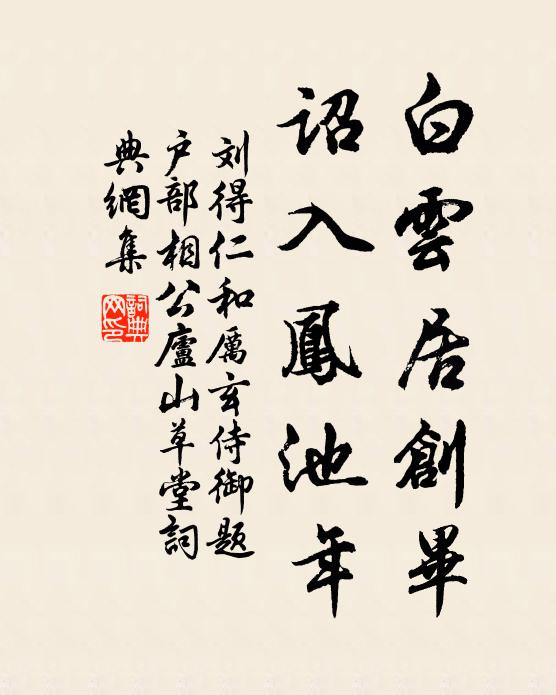 白雲居創畢
詔入鳳池年
刘得仁和厲玄侍御题
户部相公廬山草堂詞
典網集
詞典網印